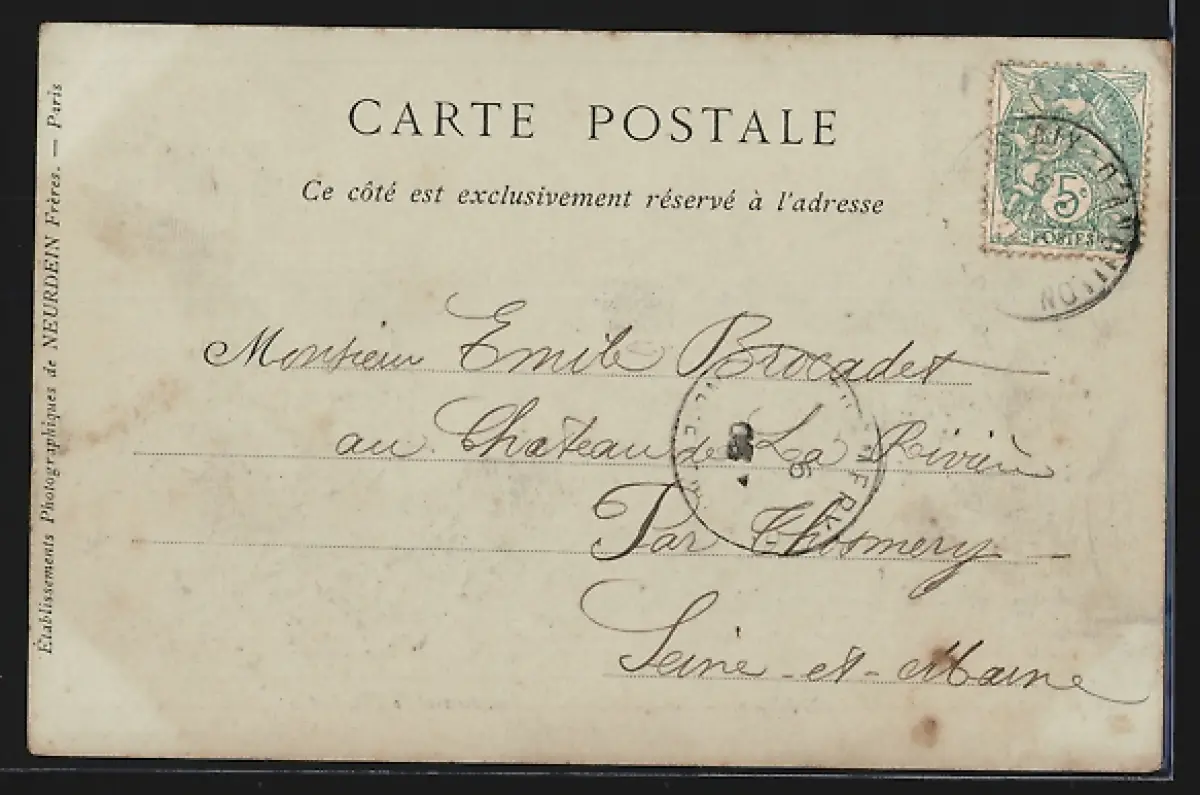 CARTE POSTALE
Ce côté est exclusivement réservé à l'adresse
5c
POSTES
AIX-D'ANGILLON
Monsieur Emile Brocadet
au Château de La Rivière
Par Thomery
Seine-et-Marne
Établissements Photographiques de NEURDEIN Frères. — Paris